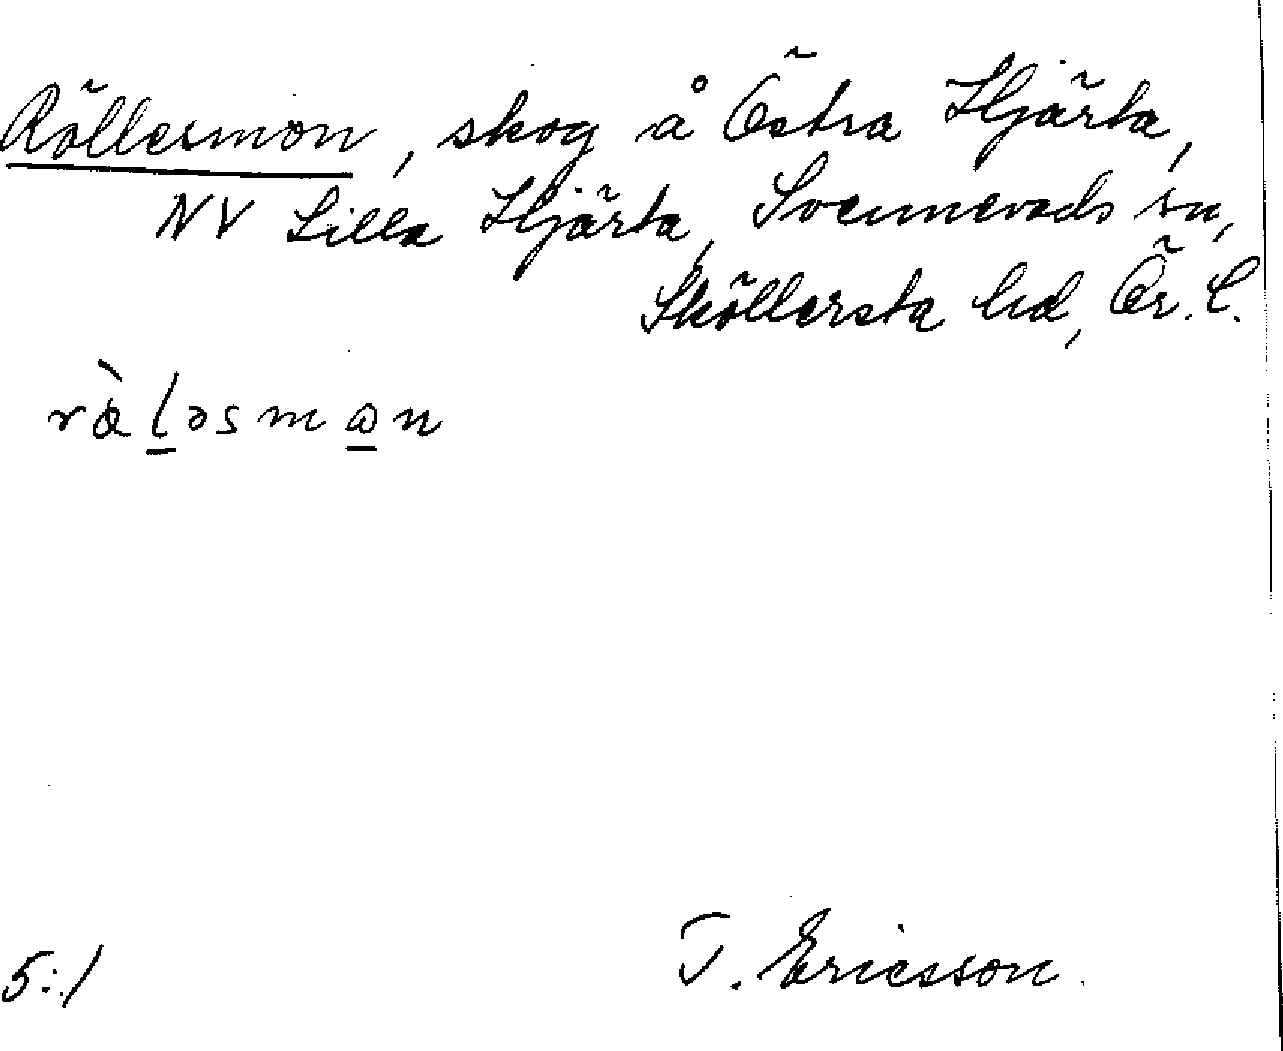 Röllesmon, skog å Östra Hjärta,
NV Lilla Hjärta, Svennevads sn,
Sköllersta hd, Ör. l.
rælǝsmɷn
5:1
T. Ericsson.